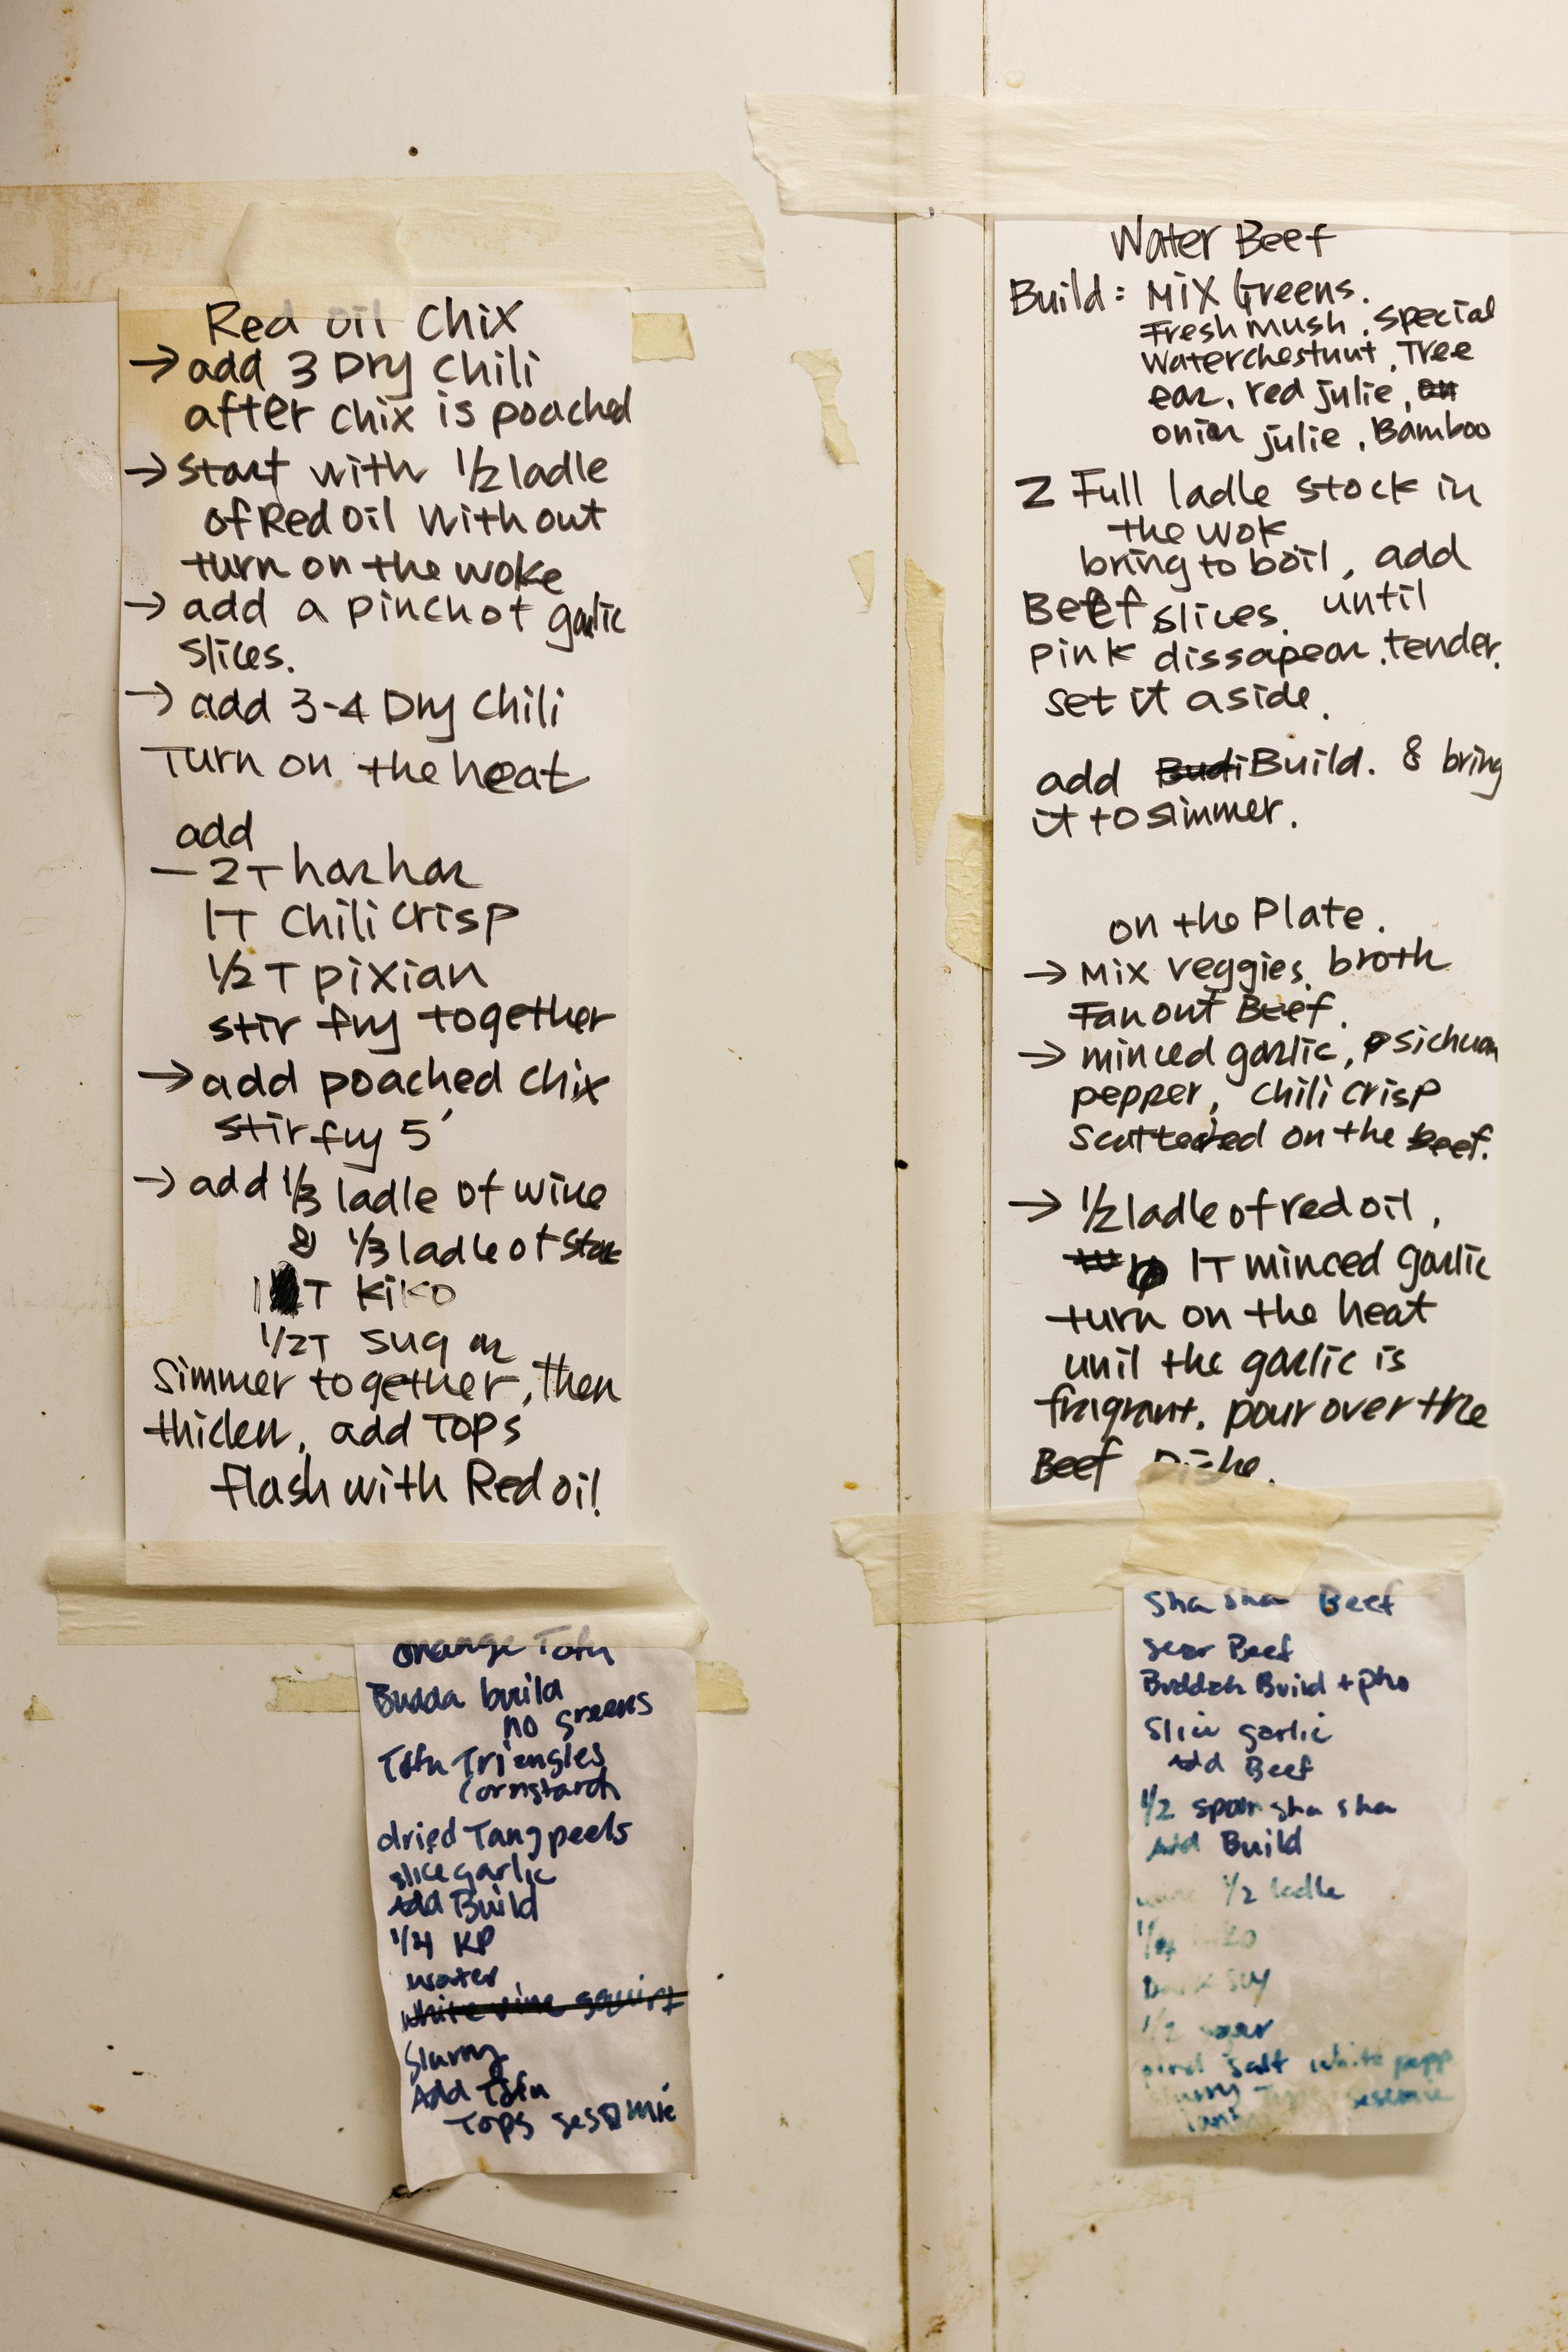 Red oil chix
→ add 3 Dry Chili
after chix is poached
→ start with 1/2 ladle
of Red oil with out
turn on the woke
→ add a pinch of garlic
slices.
→ add 3-4 Dry Chili
Turn on the heat
add
- 2T har har
1T Chili crisp
1/2 T pixian
stir fry together
→ add poached chix
stir fry 5'
→ add 1/3 ladle of wine
& 1/3 ladle of
1 T kiko
1/2T sugar
Simmer together, then
thicken, add Tops
flash with Red oil!
orange Tofu
Budda build
no greens
Tofu Triangles
Cornstarch
dried Tang peels
slice garlic
Add Build
1/4 KP
water
white wine squirt
Slurry
Add Tofu
Tops sesamie
Water Beef
Build: Mix Greens.
Fresh mush, special
Waterchestnut, Tree
ear, red julie, on
onion julie, Bamboo
2 Full ladle stock in
the wok
bring to boil, add
Beef slices. until
pink dissapear, tender.
set it aside.
add Budi Build. & bring
it to simmer.
on the Plate.
→ Mix veggies, broth
Fan out Beef.
→ minced garlic, sichuan
pepper, Chili crisp
scattered on the beef.
→ 1/2 ladle of red oil,
1T minced garlic
turn on the heat
unil the garlic is
fragrant. pour over the
Beef Dishe.
Sha Sha Beef
Sear Beef
Buddah Build + pho
Slice garlic
Add Beef
1/2 spoon sha sha
Add Build
1/2 ladle
Dark soy
1/2 sugar
salt white pepp
slurry Tops sesemie